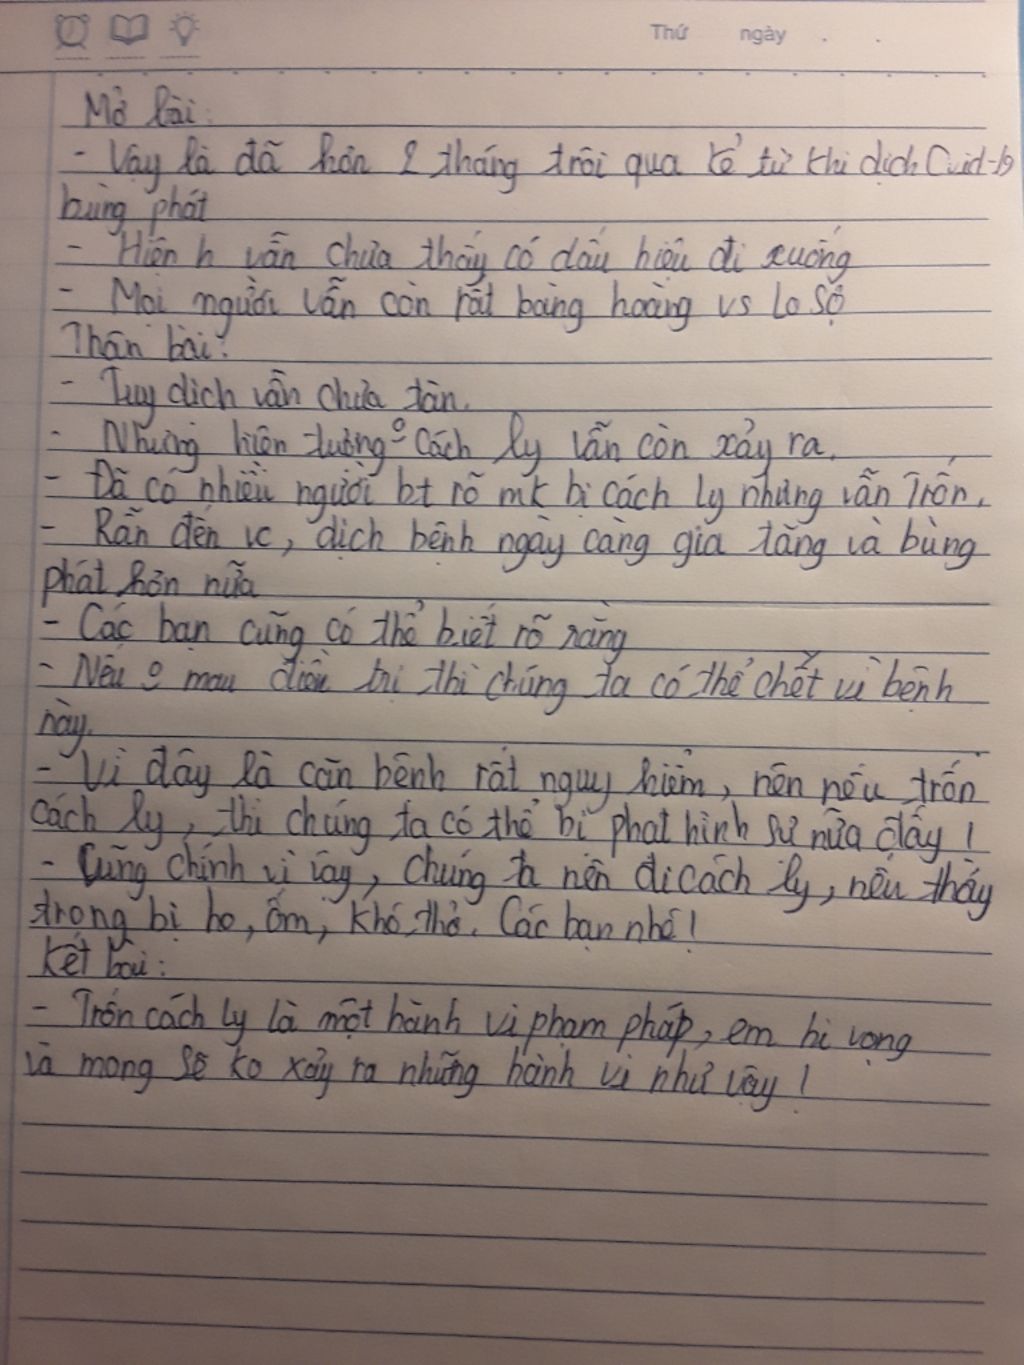 Thứ ngày . .
Mở bài:
- Vậy là đã hơn 2 tháng trôi qua kể từ khi dịch Cvid-19
bùng phát
- Hiện h vẫn chưa thấy có dấu hiệu đi xuống
- Mọi người vẫn còn rất bàng hoàng vs lo sợ
Thân bài:
- Tuy dịch vẫn chưa tàn.
- Nhưng hiện tượng cách ly vẫn còn xảy ra.
- Đã có nhiều người bt rõ mk bị cách ly nhưng vẫn Trốn.
- Rẫn đến vc, dịch bệnh ngày càng gia tăng và bùng
phát hơn nữa
- Các bạn cũng có thể biết rõ ràng
- Nếu ko mau điều trị thì chúng ta có thể chết vì bệnh
này.
- Vì đây là căn bệnh rất nguy hiểm, nên nếu trốn
cách ly, thì chúng ta có thể bị phạt hình sự nữa đấy!
- Cũng chính vì vậy, chúng ta nên đi cách ly, nếu thấy
trong bị ho, ốm, khó thở. Các bạn nhé!
Kết bài:
- Trốn cách ly là một hành vi phạm pháp, em hi vọng
và mong sẽ ko xảy ra những hành vi như vậy!